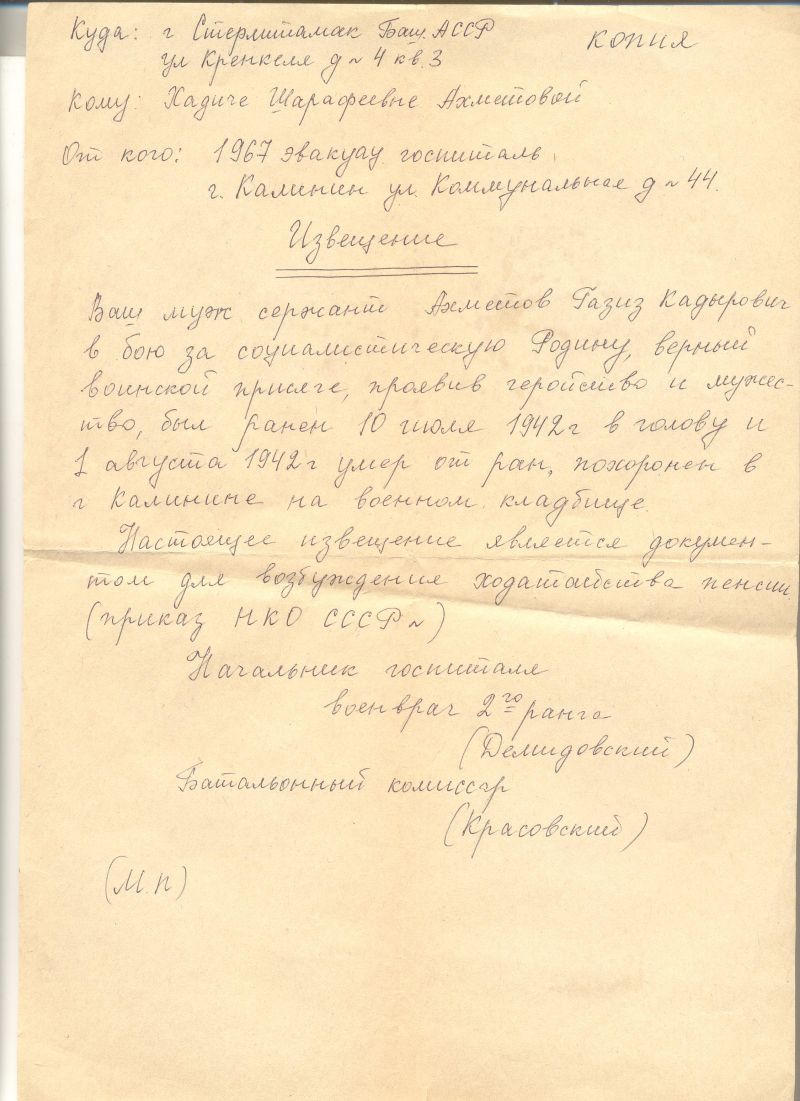 Куда: г Стерлитамак Баш. АССР
копия
ул Кренкеля д ~ 4 кв. 3
Кому: Хадиче Шарафеевне Ахметовой
От кого: 1967 эвакуац госпиталь
г. Калинин ул. Коммунальная д ~ 44.
Извещение
Ваш муж сержант Ахметов Газиз Кадырович
в бою за социалистическую Родину, верный
воинской присяге, проявив геройство и мужес-
тво, был ранен 10 июля 1942 г в голову и
1 августа 1942 г умер от ран, похоронен в
г Калинине на военном кладбище.
Настоящее извещение является докумен-
том для возбуждения ходатайства пенсии.
(приказ НКО СССР ~)
Начальник госпиталя
военврач 2го ранга
(Демидовский)
Батальонный комиссар
(Красовский)
(М.п)